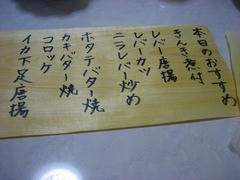 本日のおすすめ
きんき煮付
レバー唐揚
レバーカツ
ニラレバー炒め
ホタテバター焼
カキバター焼
コロッケ
イカ下足唐揚